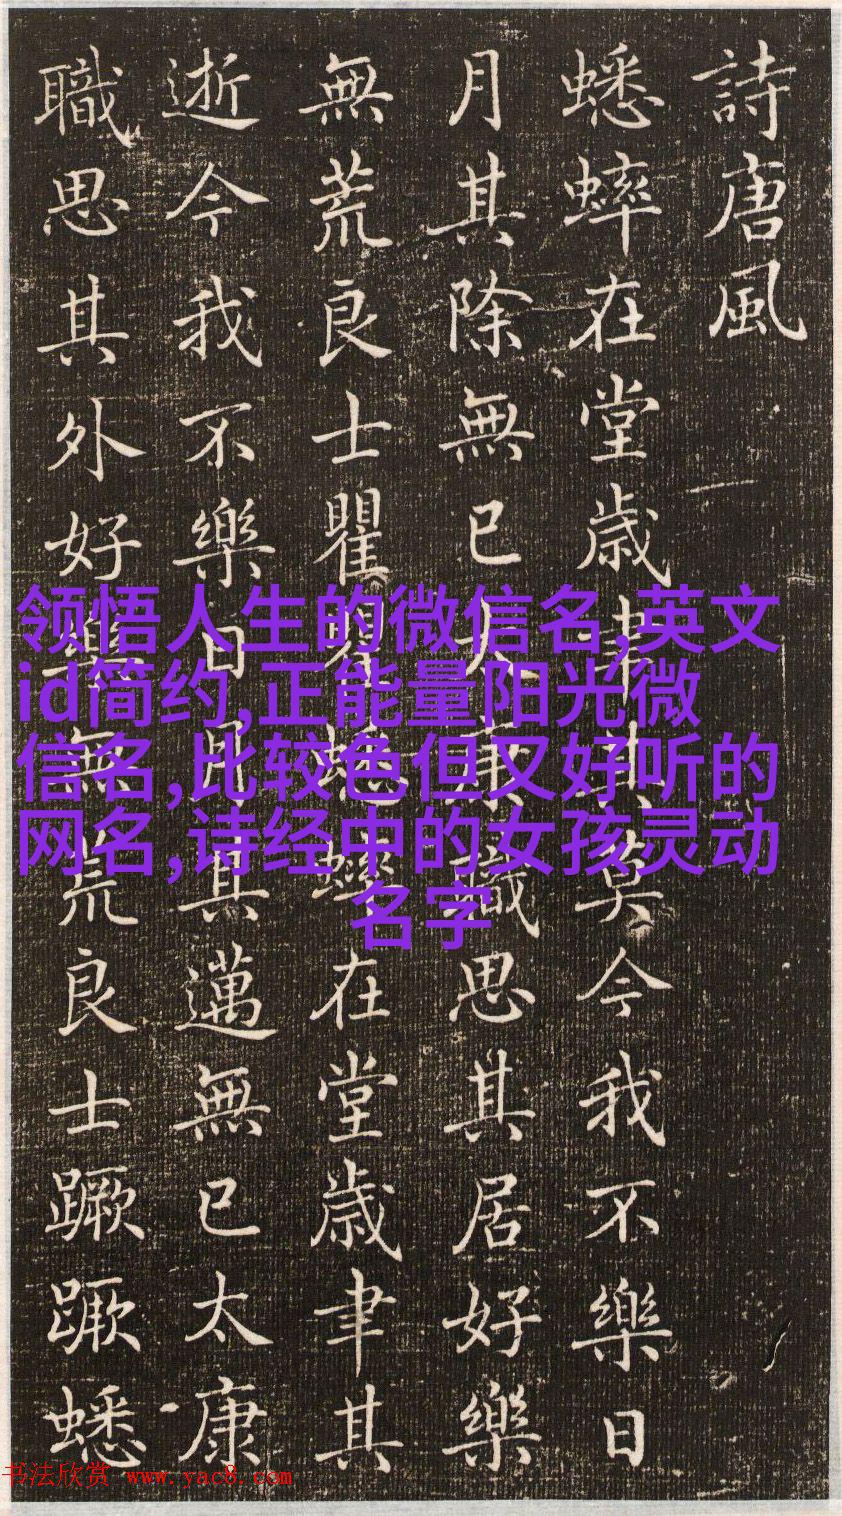 詩唐風
蟋蟀在堂歳聿其莫今我不樂日
月其除無已大康職思其居好樂
無荒良士瞿瞿蟋蟀在堂歳聿其
逝今我不樂日月其邁無已太康
職思其外好樂無荒良士蹶蹶蟋
领悟人生的微信名,英文
id简约,正能量阳光微
信名,比较色但又好听的
网名,诗经中的女孩灵动
名字
书法欣赏 www.yac8.com